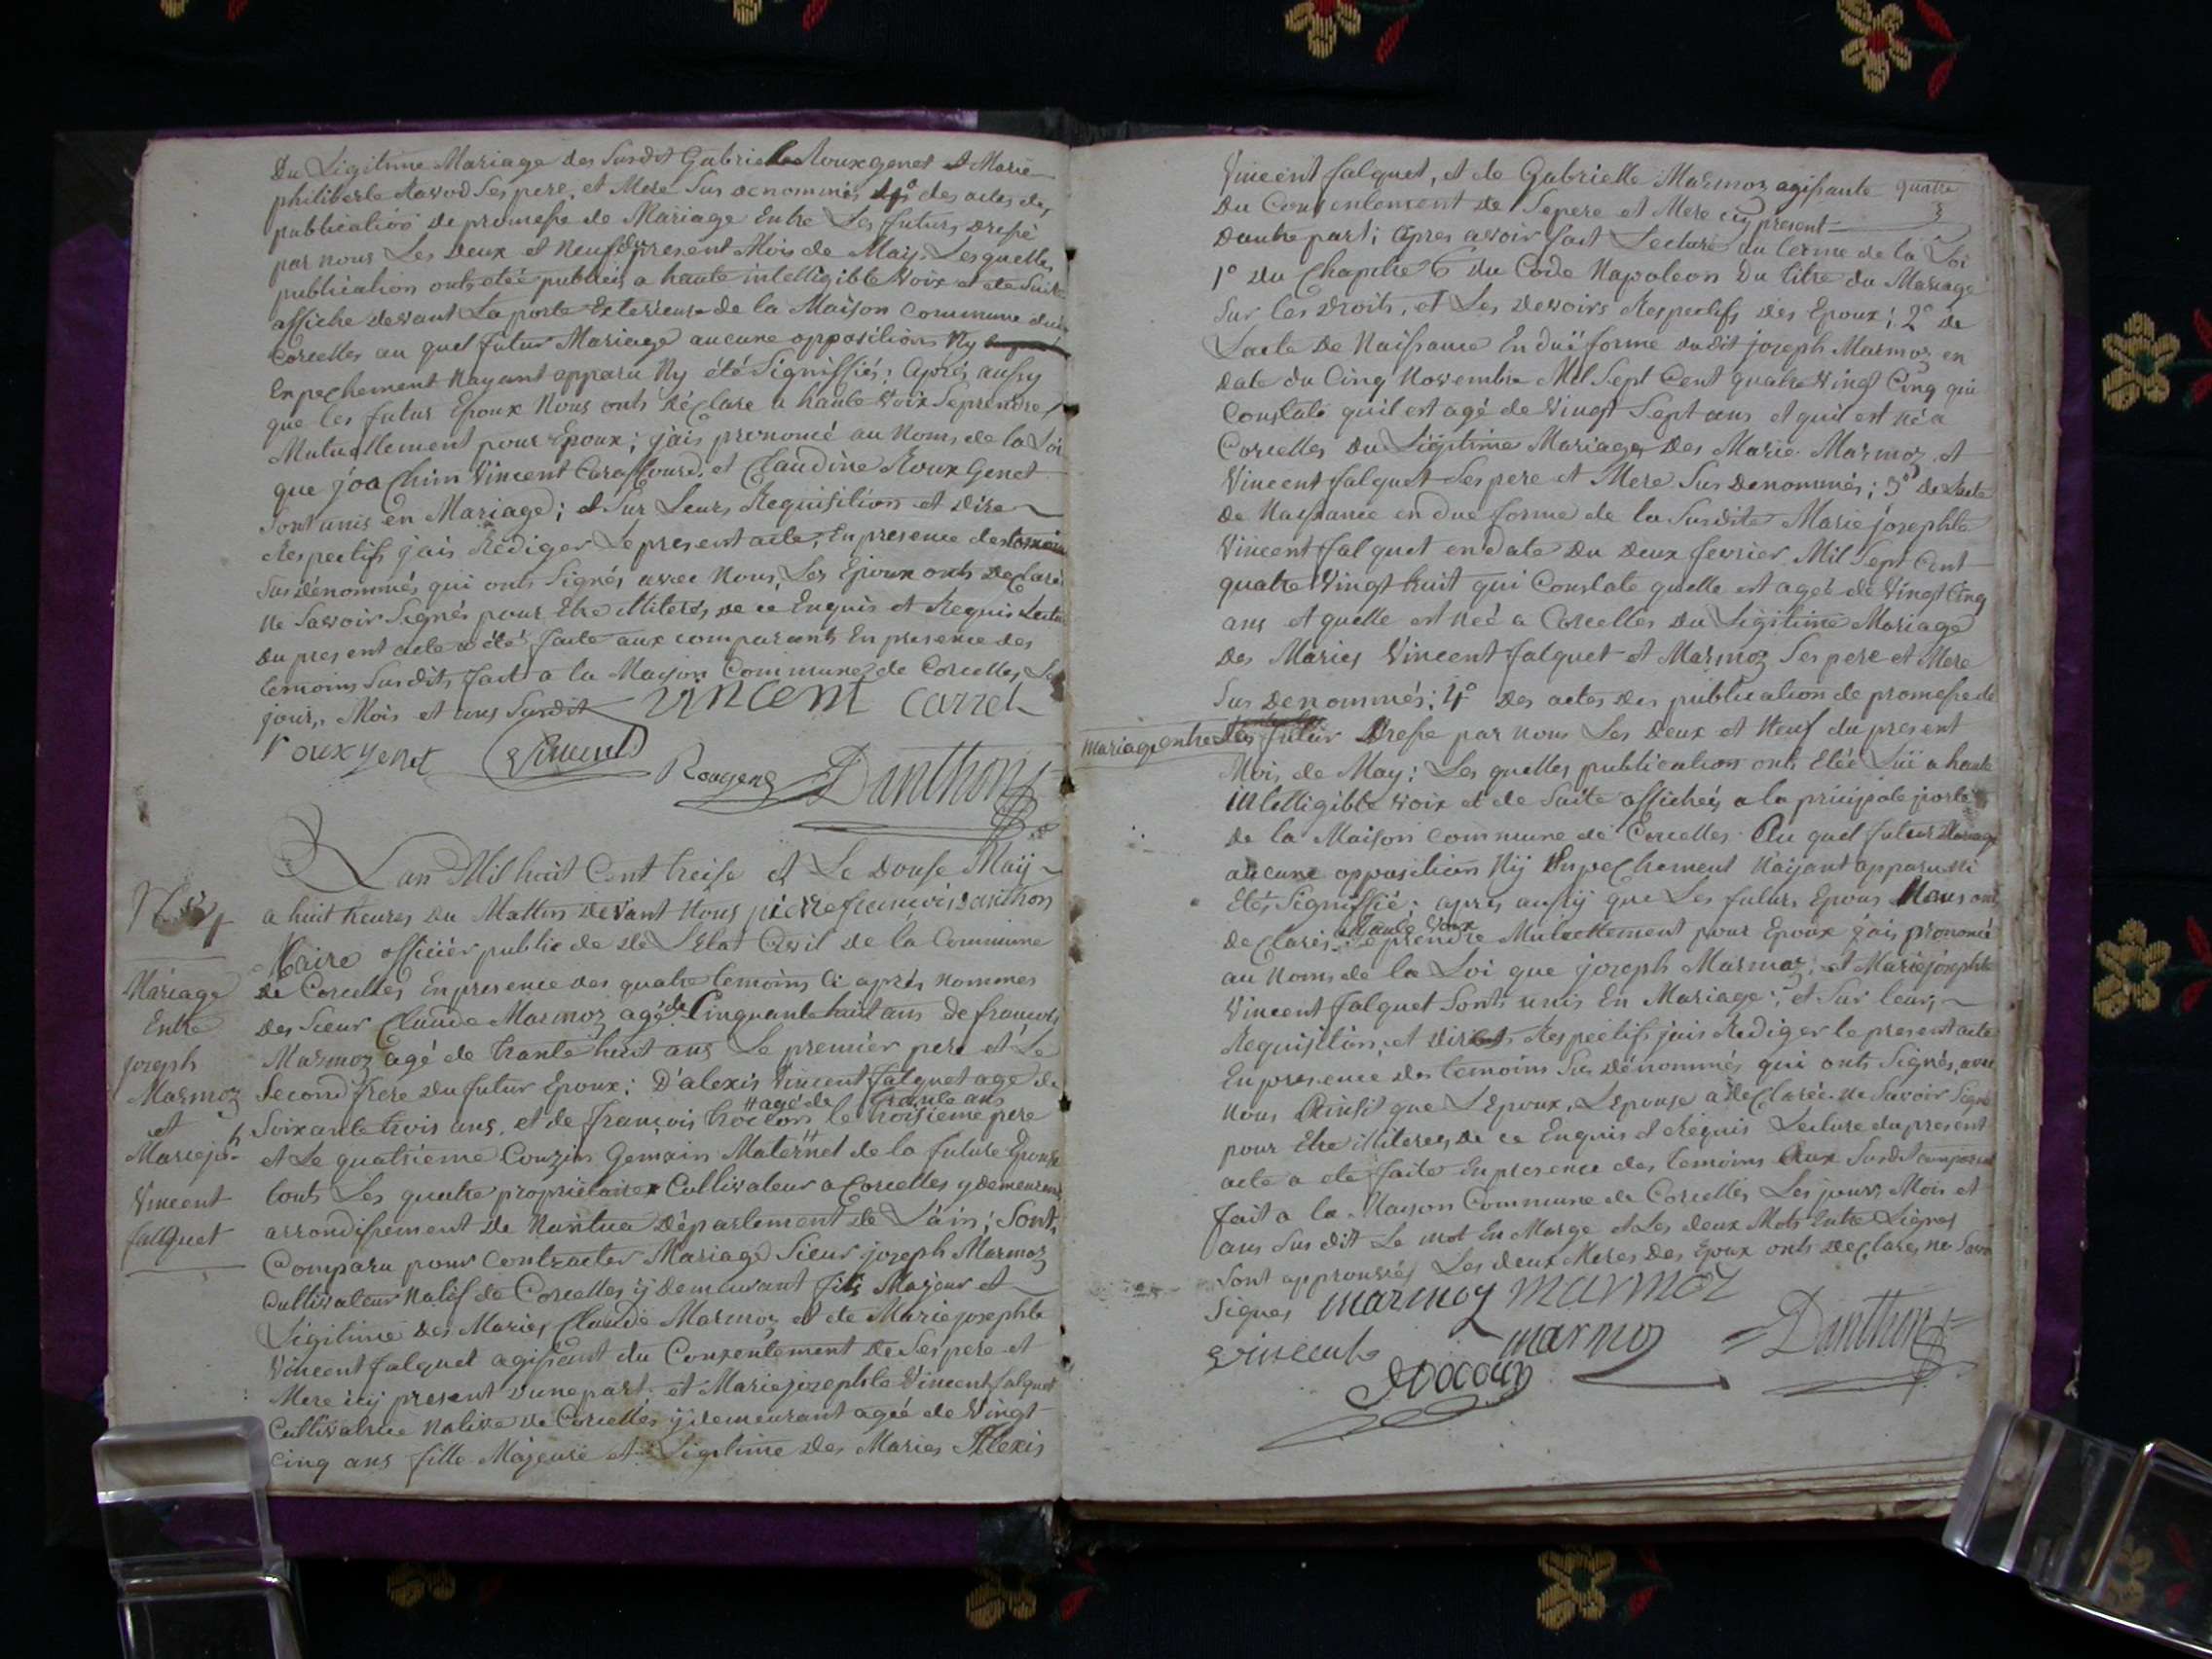 Du Ligitime Mariage des Susdit Gabriel Rouxgenet et Marie
philiberte Ravod Ses pere, et Mere Sus denommés 4° des actes des
publication de promesse de Mariage Entre Les futurs dressé
par nous Les Deux et Neuf du present Mois de May. Lesquelles
publication onts etéé publieis a haute intelligible Voix et de Suite
affiche devant La porte Exterieure de la Maison Commune dudit
Corcelles au quel futur Mariage aucune opposition Ny
Enpechement Nayant apparu Ny été Signiffiés; Aprés aussy
que les futur Epoux Nous onts déClare a haute Voix Seprendre
Mutuellement pour Epoux; j'ais prononcé au Noms de la Loi
que joaChim Vincent et Claudine Roux Genet
Sont unis en Mariage; et Sur Leurs Requisition et dire
Respectifs j'ais Rédiger Le present acte, En presence des temoins
Sus dénommés qui onts Signés avec Nous, Les Epoux onts deClarés
Ne Savoir Signés pour Etre illiterés de ce Enquis et Requis Lecture
Du present acte a été faite aux comparants En presence des
temoins Susdits, fait a la Mayson Commune de Corcelles, Les
jours, Mois et ans Susdit Vincent Carrel
rouxgenet Vincent Rouxgenet Danthon
Lan Mil huit Cent treise et Le Douse Maÿ
a huit heures du Mattin devant Nous pierre françois danthon
Maire officiér public de de L'Etat Civil de la Commune
de Corcelles En presence des quatre temoins Ci aprés nommes
Mariage
Entre
joseph
Marmoz
et
Mariejph
Vincent
falquet
Des Sieur Claude Marmoz agé de Cinquante huit ans De françois
Marmoz agé de trante huit ans Le premiér pere et Le
Second frere du futur Epoux; D'alexis Vincent falquet age de
agé de trante ans
Soixante trois ans, et de françois le troisieme pere
et Le quatrieme Couzin Gemain Maternel de la future Epouse
touts Les quatre proprietaires Cultivateur a Corcelles y demeurent
arrondissement de Nantua Département de L'ain; Sonts
Comparu pour Contracter Mariage Sieur joseph Marmoz
Cultivateur Natif de Corcelles ÿ demeurant fils Majeur et
Ligitime des Maries Claude Marmoz et de Mariejosephte
Vincent falquet agissant du Consentement de Ses pere et
Mere icy present d'une part; et Mariejosephte Vincent falquet
Cultivatrice Native de Corcelles ÿ demeurant ageé de Vingt
Cinq ans fille Majeure et Ligitime des Maries Alexis
Vincent falquet, et de Gabrielle Marmoz agissante quatre
Du Consentement de Sepere et Mere icy present
Dautre part; Apres avoir fait Lecture au terme de la Loi
1° du Chapitre 6 du Code Napoleon Du titre du Mariage
Sur les droits, et Les devoirs Respectifs des Epoux; 2° de
Lacte de Naissance En duï forme dudit joseph Marmoz en
date du Cinq Novembre Mil Sept Cent quatre Vingt Cinq qui
Constate quil est agé de Vingt Sept ans et quil est né a
Corcelles Du Ligitime Mariage Des Marie Marmoz et
Vincent falquet Ses pere et Mere Sus denommés; 3° de Lacte
de Naissance en due forme de la Susdite Marie josephte
Vincent falquet en date du deux fevrier Mil Sept Cent
quatre Vingt huit qui Constate quelle est ageé de Vingt Cinq
ans et quelle est neé a Corcelles du Ligitime Mariage
Des Maries Vincent falquet et Marmoz Ses pere et Mere
Sus denommés: 4° des actes des publication de promesse de
mariage entre Les futur Dressé par nous Les deux et Neuf du present
Mois de May; Les quelles publication onts Eteé Luï a haute
intelligible voix et de Suite affichés a la principale porte
de la Maison commune de Corcelles. Au quel futur Mariage
aucune opposition Nÿ EnpeChement Nayant apparu Ni
Etés Signiffié; aprés aussÿ que Les futurs Epous Nous onts
a haute Voix
deClarés Seprendre Mutuellement pour Epoux j'ais prononcé
au Noms de la Loi que joseph Marmoz; et Mariejosephte
Vincent falquet Sonts unis En Mariage; et Sur leurs
Requisition, et dires Respectifs jais Rediger le present acte
En presence des temoins Sus dénommés qui onts Signés, avec
nous Ainsit que L'Epoux, L'epouse a deClaréé ne Savoir Signé
pour Etre illiteres, de ce Enquis et Requis Lecture du present
acte a eté faite En presence des temoins Aux Susdit comparant
fait a la Mayson Commune de Corcelles Les jours, Mois et
ans Sus dit Le mot En Marge et Les deux Mots Entre Lignes
Sont approuvés Les deux Meres des Epoux onts deClares ne Savoir
Signes marmoz marmoz
Vincent marmoz Danthon